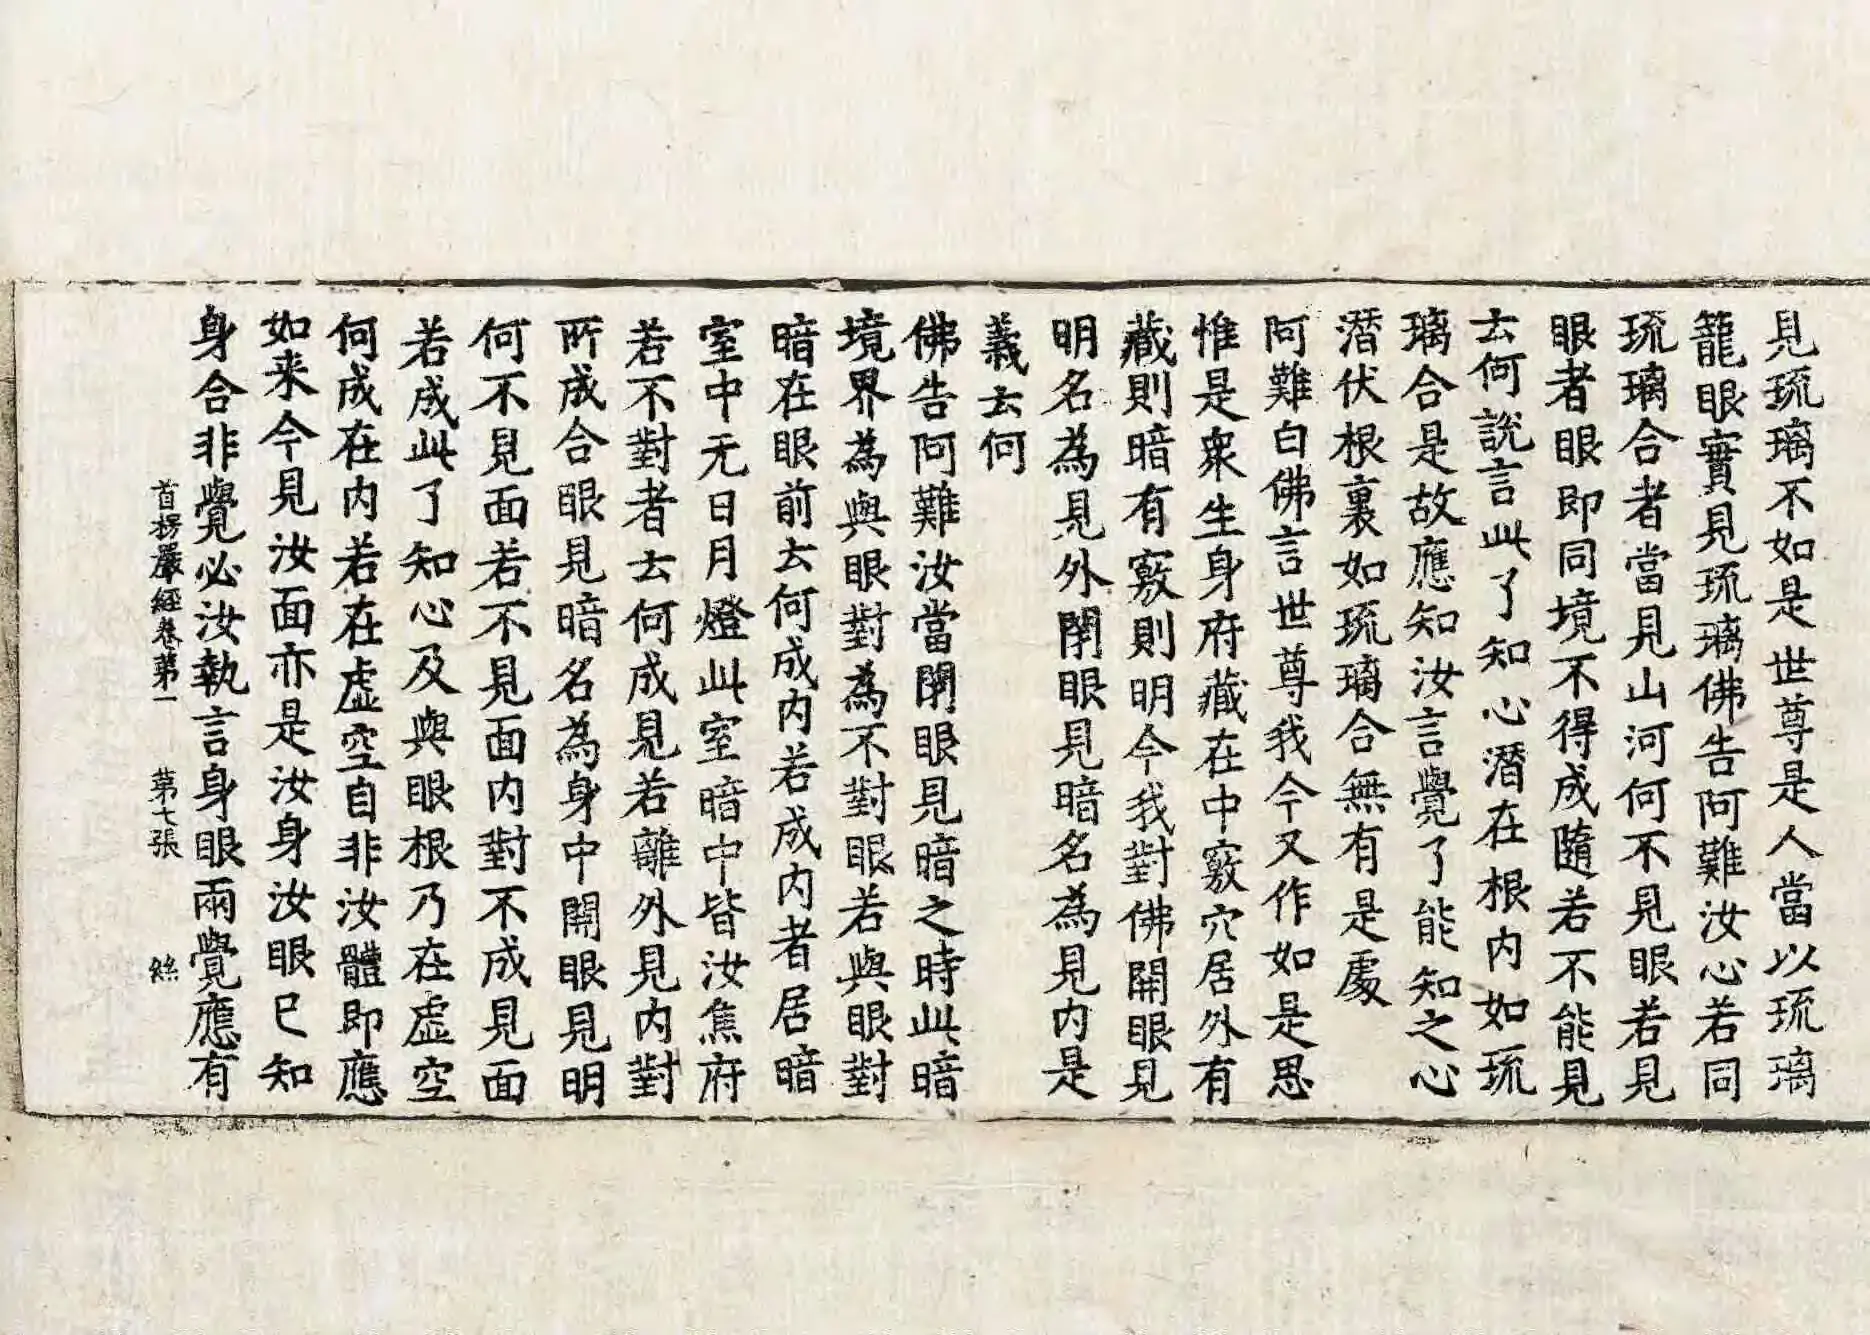 見琉璃不如是世尊是人當以琉璃
籠眼實見琉璃佛告阿難汝心若同
琉璃合者當見山河何不見眼若見
眼者眼即同境不得成隨若不能見
云何說言此了知心潛在根內如琉
璃合是故應知汝言覺了能知之心
潛伏根裏如琉璃合無有是處
阿難白佛言世尊我今又作如是思
惟是衆生身府藏在中竅穴居外有
藏則暗有竅則明今我對佛開眼見
明名為見外閉眼見暗名為見內是
義云何
佛告阿難汝當閉眼見暗之時此暗
境界為與眼對為不對眼若與眼對
暗在眼前云何成內若成內者居暗
室中无日月燈此室暗中皆汝焦府
若不對者云何成見若離外見內對
所成合眼見暗名為身中開眼見明
何不見面若不見面內對不成見面
若成此了知心及與眼根乃在虛空
何成在內若在虛空自非汝體即應
如来今見汝面亦是汝身汝眼已知
身合非覺必汝執言身眼兩覺應有
首楞嚴經卷第一 第七張 絲